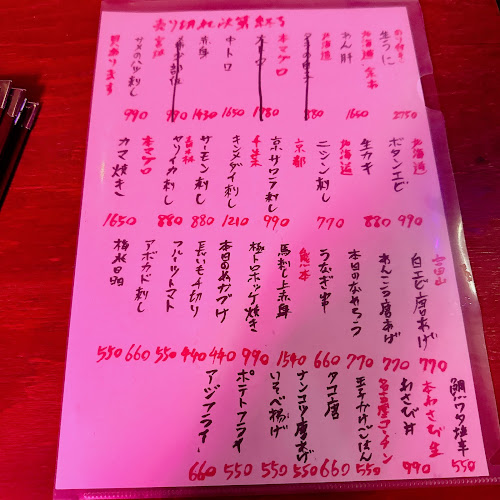 売り切れ次第終了
生うに
2750
北海道 余市
あん肝
1650
北海道
880
本マグロ
大トロ
1780
中トロ
1650
赤身
1430
希少部位
990
宮城
サメのハツ刺し
990
貝あります
ボタンエビ
990
北海道
生カキ
880
北海道
ニシン刺し
770
京都
京サワラ刺し
990
千葉
キンメダイ刺し
1210
サーモン刺し
880
青森
ヤリイカ刺し
880
本マグロ
カマ焼き
1650
富山
白エビ唐あげ
770
あんこう唐あげ
770
本日のなめろう
770
うなぎ串
660
熊本
馬刺し上赤身
1540
極トロホッケ焼き
990
本日のぬかづけ
440
長いも千切り
440
フルーツトマト
550
アボカド刺し
660
梅水晶
550
鯛ワタ塩辛
550
本わさび 生
わさび丼
990
名古屋コーチン
玉子かけごはん
550
タコ唐
660
ナンコツ唐あげ
550
いそべ揚げ
550
ポテトフライ
550
アジフライ
660